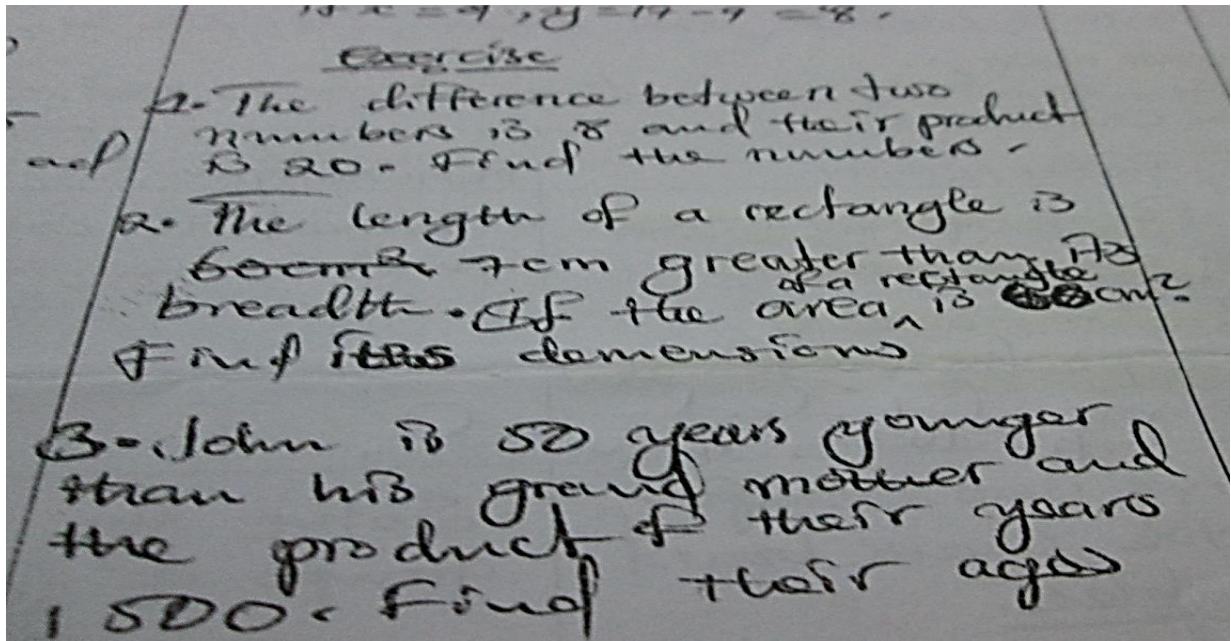 If x = 4, y = 14 - 4 = 8.
Exercise
1. The difference between two
numbers is 8 and their product
is 20. Find the numbers.
2. The length of a rectangle is
60cm² 7cm greater than its
of a rectangle
breadth. If the area is cm².
Find its demensions
3. John is 50 years younger
than his grand mother and
the product of their years
1500. Find their ages
and